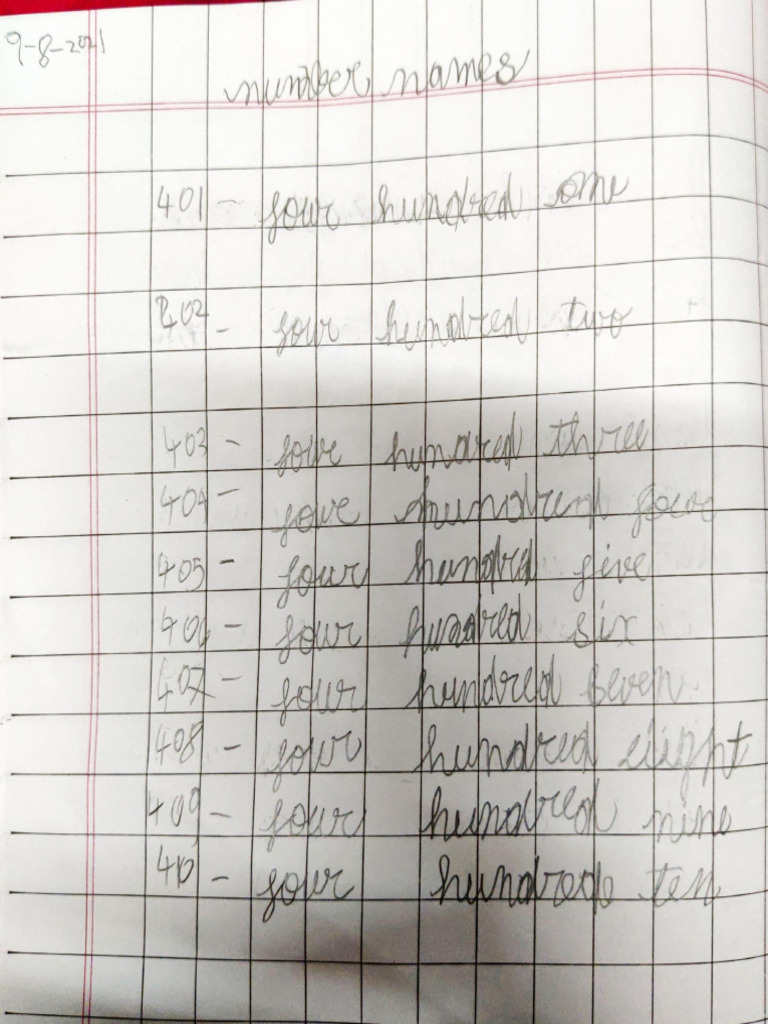 9-8-2021
number names
401 - four hundred one
402 - four hundred two
403 - four hundred three
404 - four hundred four
405 - four hundred five
406 - four hundred six
407 - four hundred seven
408 - four hundred eight
409 - four hundred nine
410 - four hundred ten